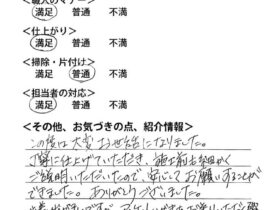 ・職人のマナー＞
満足 普通 不満
＜仕上がり＞
満足 普通 不満
＜掃除・片付け＞
満足 普通 不満
＜担当者の対応＞
満足 普通 不満
＜その他、お気づきの点、紹介情報＞
この度は大変お世話になりました。
丁寧に仕上げていただき、施工前も細かく
ご説明いただいたので、安心してお願いすることが
できました。ありがとうございました。